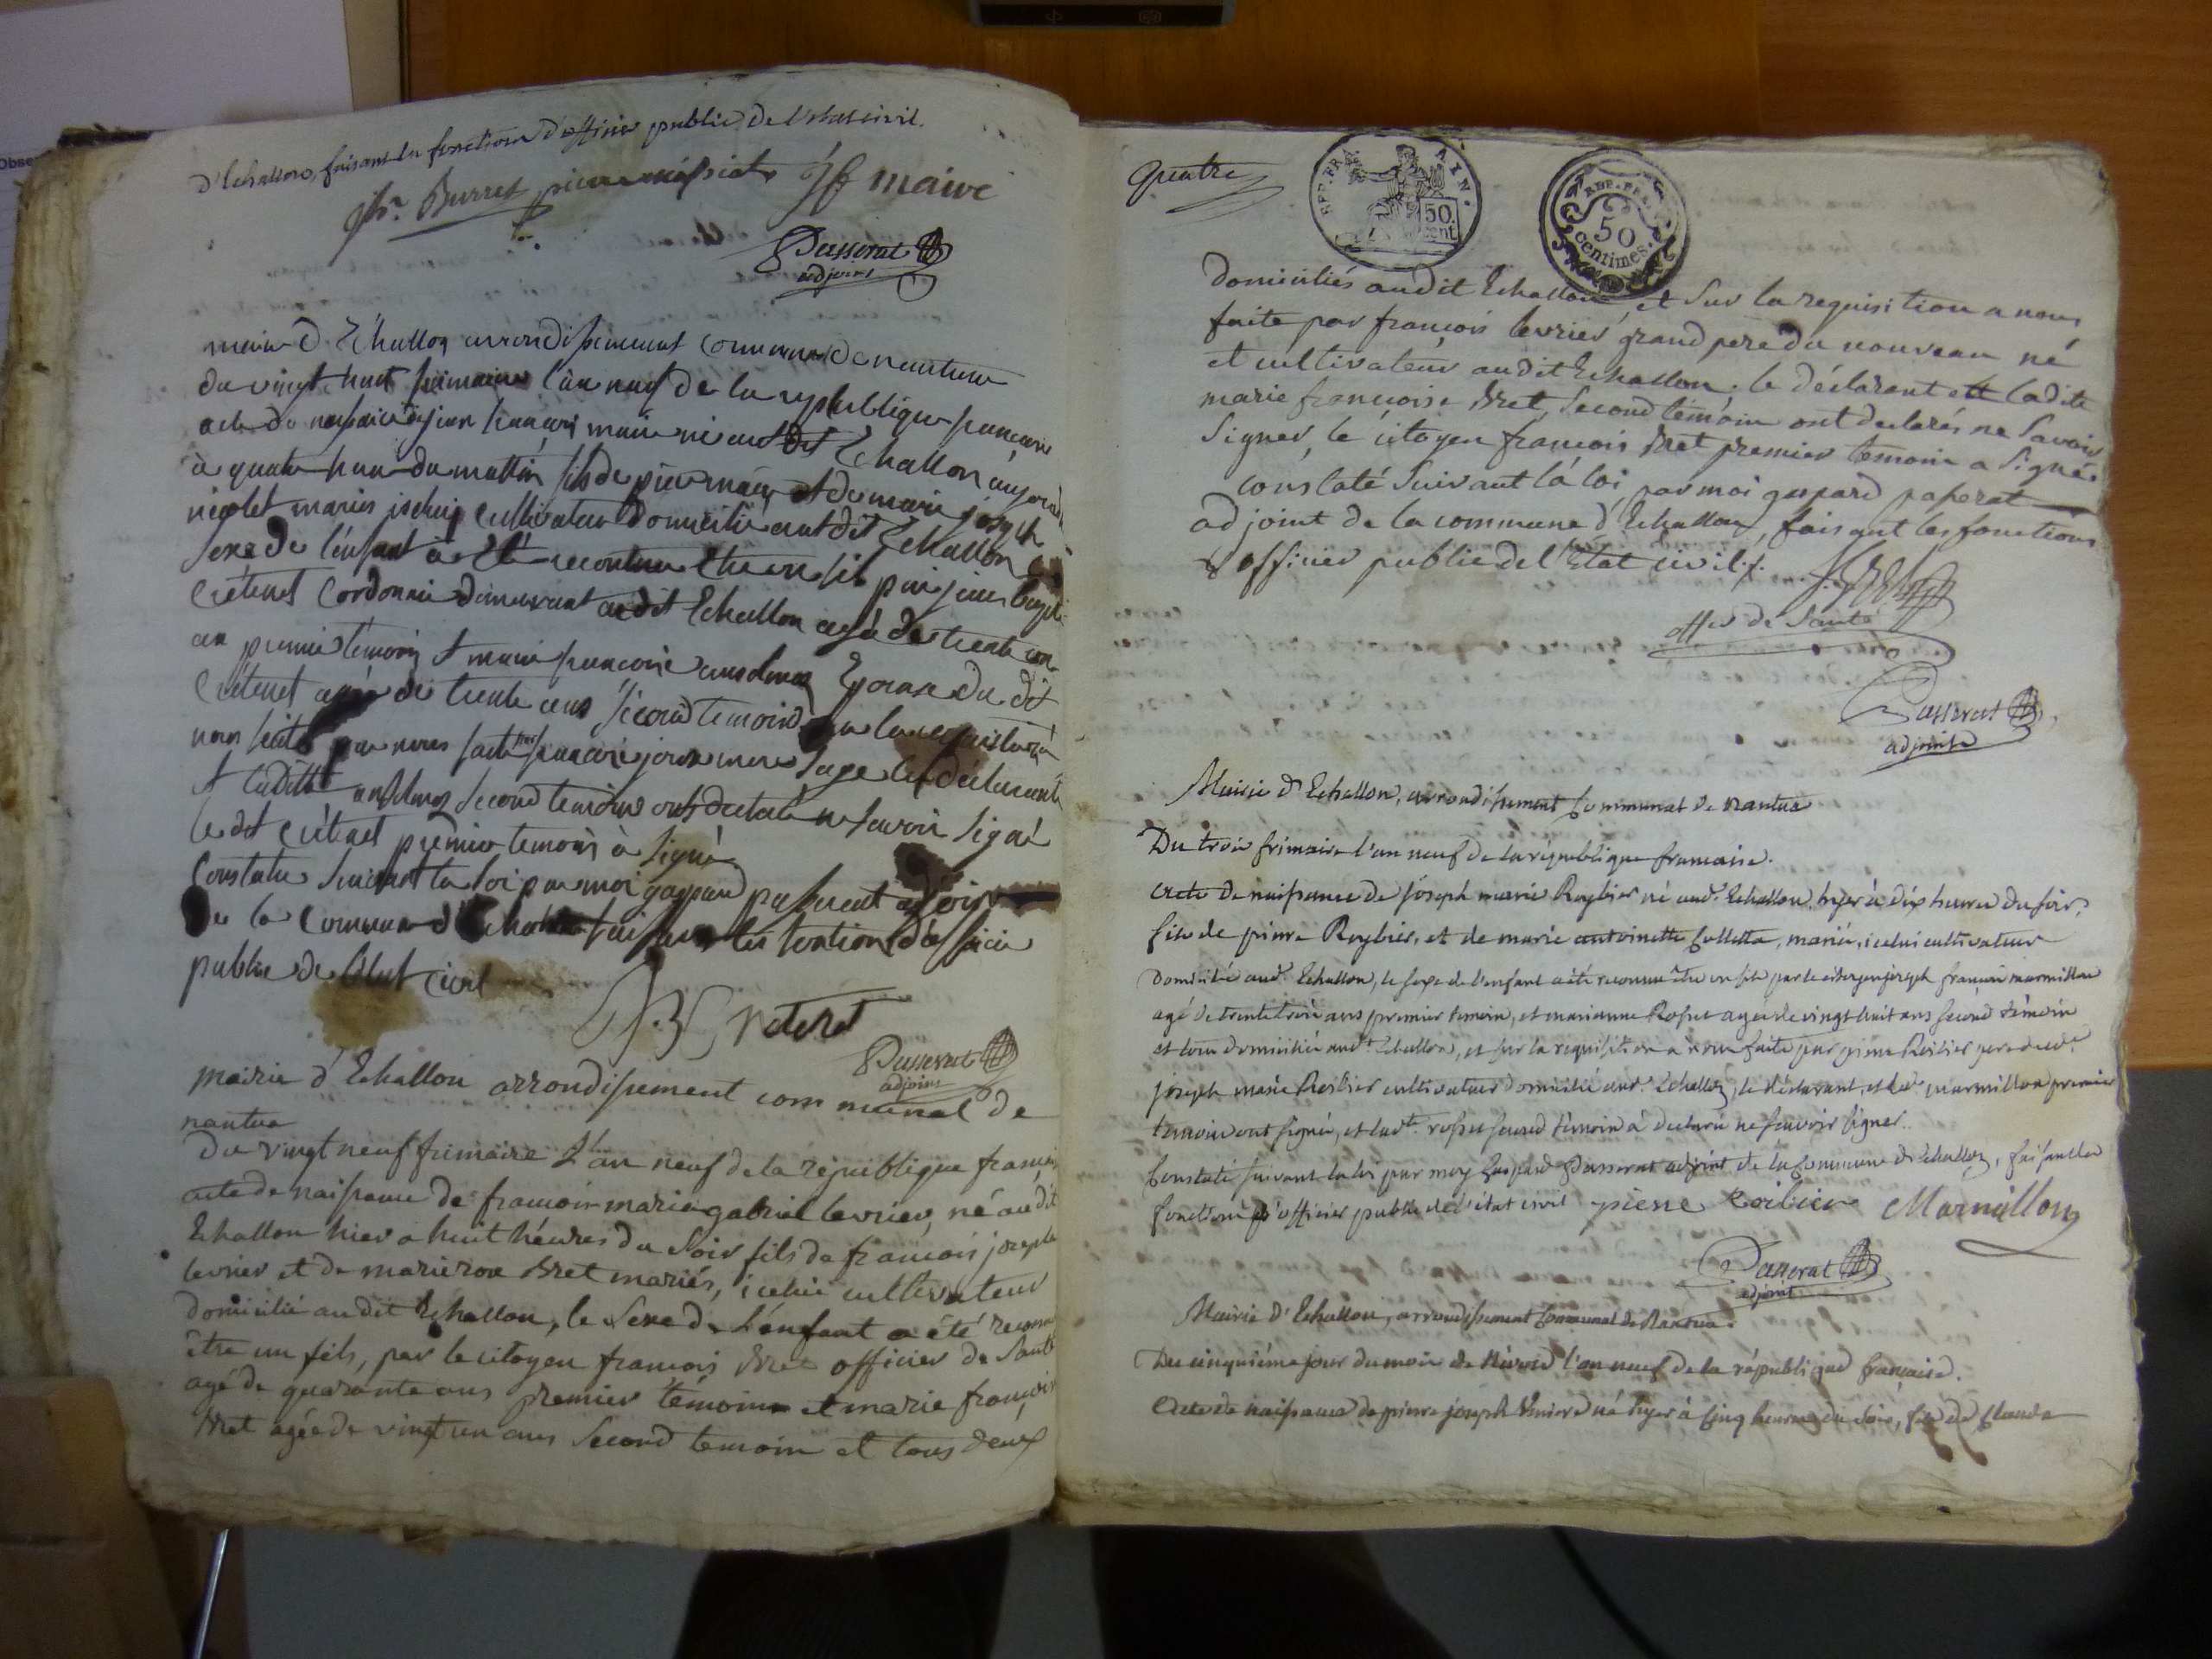 d'Echallon, faisant la fonction d'officier public de l'etat civil.
Burret pierre maire
Passerat
adjoint
mairie d'Echallon arrondissement communal de nantua
du vingt huit frimaire l'an neuf de la republique francaise
acte de naissance de jean francois maire né audit Echallon
à quatre heure du mattin fils de pierre maire et de marie joseph
nicolet mariés icelui cultivateur domicilié audit Echallon
sexe de l'enfant à été reconnu etre un fils par jean
crétenet Cordonnie demeurant audit Echallon agé de trente
an premier témoin et marie francoise Epouse du dit
Crétenet agée de trente ans second temoins
par nous faite francoise sage le declarant
et laditte second temoins ont declaré ne savoir signé
le dit crétenet premier temoin à signé
Constatée suivant la loi par moi gaspard passerat adjoint
de la Commune d'Echallon faisant les fontions d'officier
public de l'état civil
Passerat
adjoint
mairie d'Echallon arrondissement communal de
nantua
Du vingt neuf frimaire L'an neuf de la république français
acte de naissance de francois marie gabriel levrier, né audit
Echallon hier a huit héures du Soir fils de francois joseph
levrier et de marie rose Bret mariés, icelui cultivateur
domicilié audit Echallon, le Sexe de L'enfant a été reconnu
être un fils, par le citoyen francois Bret officier de Santé
agé de quarante ans premier témoin et marie françoise
Bret agée de vingt un ans Second temoin et tous deux
quatre
REP. FRA. AYN.
50. cent
REP. FRA.
50 centimes.
domiciliés audit Echallon, et Sur la requisition a nous
faite par francois levrier grand pere du nouveau né
et cultivateur audit Echallon. le déclarant ett ladite
marie francoise Bret, Second témoin ont declarés ne Savoir
Signer, le citoyen francois Bret premier temoin a Signé.
constaté Suivant la loi par moi gaspard passerat
adjoint de la commune d'Echallon, faisant les fonctions
d'officier public de l'Etat civil./.
offer de Santé
Passerat
adjoint
Mairie d'Echallon, arrondissement Communal de Nantua
Du trois frimaire l'an neuf de la république francaise.
acte de naissance de joseph marie Reybier né aud.t Echallon, hyer à dix heures du soir,
fils de pierre Reybier, et de marie antoinette Colletta, mariés, icelui cultivateur
domicilié aud.t Echallon, le sexe de l'enfant a été reconnu etre un fils par le citoyen joseph françois marmillon
agé de trente trois ans premier temoin, et marianne Rosset agée de vingt huit ans second témoin
et tous domiciliés aud.t Echallon, et sur la requisition a nous faite par pierre Reibier pere dud.t
joseph marie Reibier cultivateur domicilié aud.t Echallon, le déclarant, et led.t marmillon premier
temoin ont signés, et lad.te rosset second témoin à declaré ne sçavoir signer.
Constaté suivant la loi par moy Gaspard Passerat adjoint de la Commune d'Echallon, faisant les
fonctions d'officier public de l'état civil pierre Reibier Marmillon
Passerat
adjoint
Mairie d'Echallon, arrondissement Communal de Nantua.
Du cinquiéme jour du mois de Nivose l'an neuf de la république française.
Acte de naissance de pierre joseph né hyer à cinq heures du soir, fils de Claude